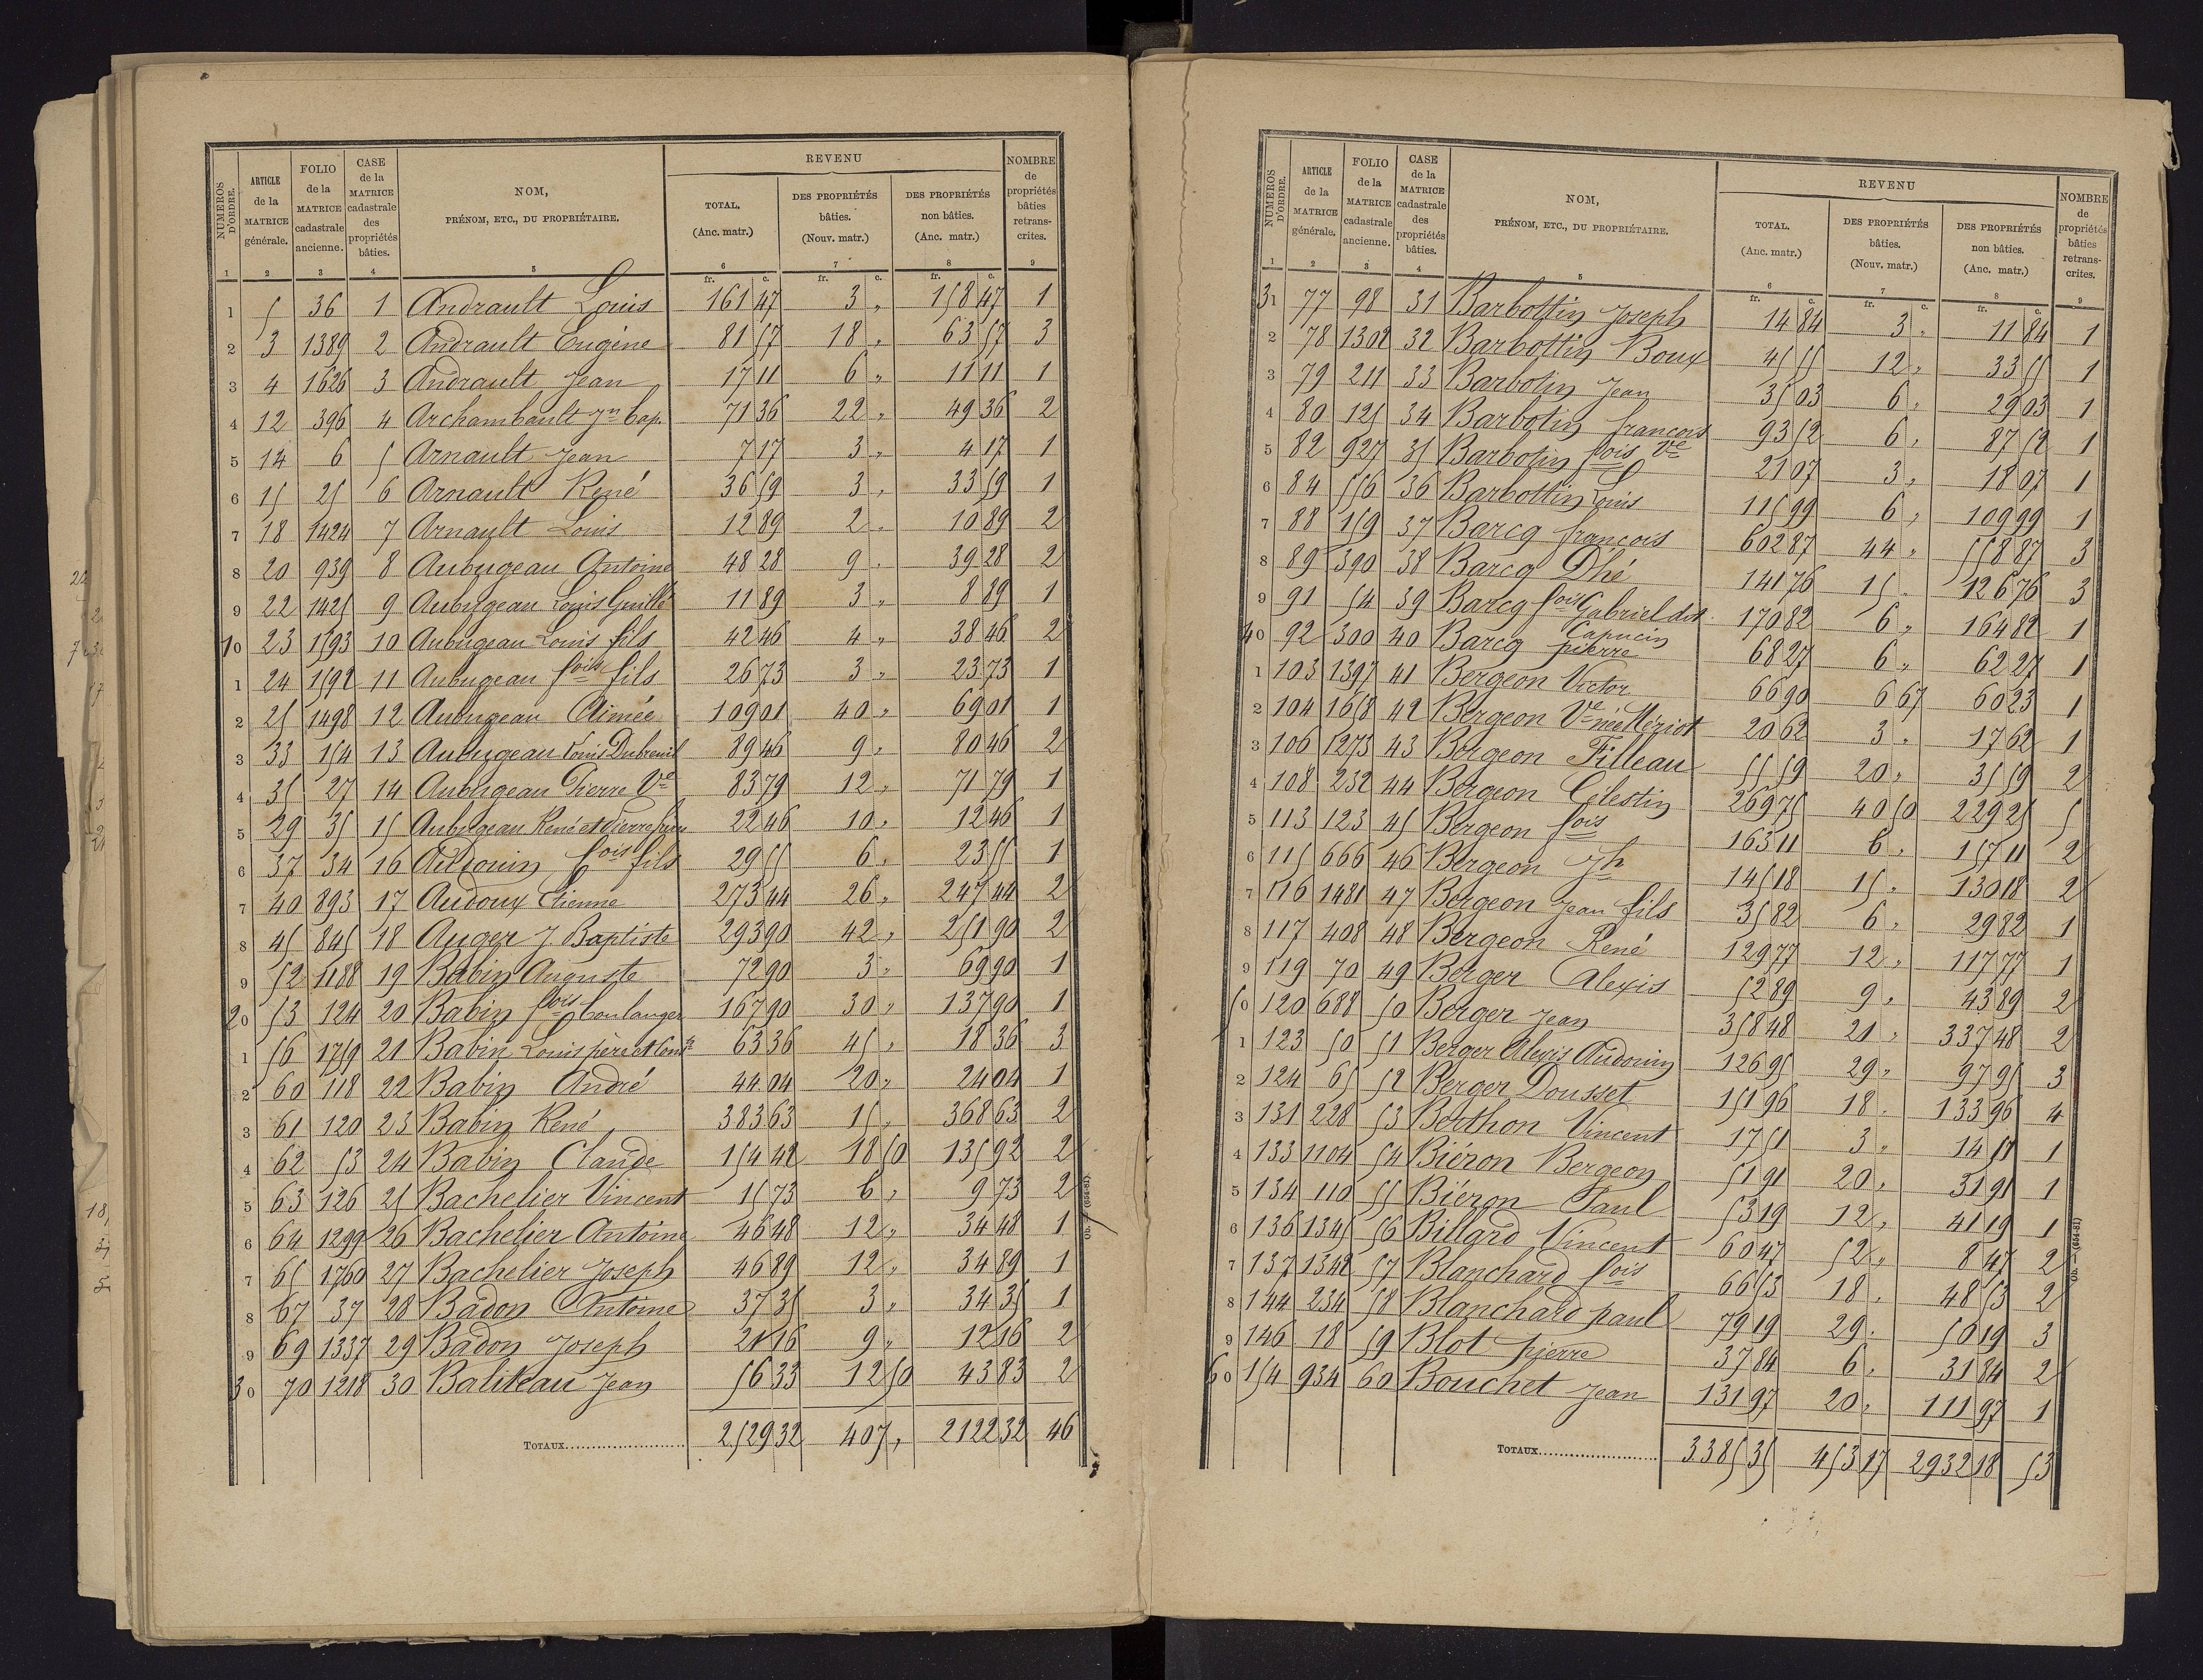 NUMÉROS D'ORDRE. | ARTICLE de la MATRICE générale. | FOLIO de la MATRICE cadastrale ancienne. | CASE de la MATRICE cadastrale des propriétés bâties. | NOM, PRÉNOM, ETC., DU PROPRIÉTAIRE. | REVENU | NOMBRE de propriétés bâties retranscrites.
TOTAL. (Anc. matr.) | DES PROPRIÉTÉS bâties. (Nouv. matr.) | DES PROPRIÉTÉS non bâties. (Anc. matr.)
1 | 2 | 3 | 4 | 5 | 6 | 7 | 8 | 9
fr. c. | fr. c. | fr. c.
1 | 5 | 36 | 1 | Andrault Louis | 161 47 | 3 " | 158 47 | 1
2 | 3 | 1389 | 2 | Andrault Eugène | 81 57 | 18 " | 63 57 | 3
3 | 4 | 1626 | 3 | Andrault Jean | 17 11 | 6 " | 11 11 | 1
4 | 12 | 396 | 4 | Archambault Jn Bap. | 71 36 | 22 " | 49 36 | 2
5 | 14 | 6 | 5 | Arnault Jean | 7 17 | 3 " | 4 17 | 1
6 | 15 | 25 | 6 | Arnault René | 36 59 | 3 " | 33 59 | 1
7 | 18 | 1424 | 7 | Arnault Louis | 12 89 | 2 " | 10 89 | 2
8 | 20 | 939 | 8 | Aubugeau Antoine | 48 28 | 9 " | 39 28 | 2
9 | 22 | 1425 | 9 | Aubugeau Louis Guillé | 11 89 | 3 " | 8 89 | 1
10 | 23 | 1593 | 10 | Aubugeau Louis fils | 42 46 | 4 " | 38 46 | 2
1 | 24 | 1592 | 11 | Aubugeau fois fils | 26 73 | 3 " | 23 73 | 1
2 | 25 | 1498 | 12 | Aubugeau Aimée | 109 01 | 40 " | 69 01 | 1
3 | 33 | 154 | 13 | Aubugeau Louis Dubreuil | 89 46 | 9 " | 80 46 | 2
4 | 35 | 27 | 14 | Aubugeau Pierre Ve | 83 79 | 12 " | 71 79 | 1
5 | 29 | 35 | 15 | Aubugeau René et Pierre | 22 46 | 10 " | 12 46 | 1
6 | 37 | 34 | 16 | Audouin fois fils | 29 55 | 6 " | 23 55 | 1
7 | 40 | 893 | 17 | Audoux Etienne | 273 44 | 26 " | 247 44 | 2
8 | 45 | 845 | 18 | Auger J. Baptiste | 293 90 | 42 " | 251 90 | 2
9 | 52 | 1188 | 19 | Babin Auguste | 72 90 | 3 " | 69 90 | 1
20 | 53 | 124 | 20 | Babin fois boulanger | 167 90 | 30 " | 137 90 | 1
1 | 56 | 1759 | 21 | Babin Louis père et | 63 36 | 45 " | 18 36 | 3
2 | 60 | 118 | 22 | Babin André | 44 04 | 20 " | 24 04 | 1
3 | 61 | 120 | 23 | Babin René | 383 63 | 15 " | 368 63 | 2
4 | 62 | 53 | 24 | Babin Claude | 154 42 | 18 50 | 135 92 | 2
5 | 63 | 126 | 25 | Bachelier Vincent | 15 73 | 6 " | 9 73 | 2
6 | 64 | 1299 | 26 | Bachelier Antoine | 46 48 | 12 " | 34 48 | 1
7 | 65 | 1760 | 27 | Bachelier Joseph | 46 89 | 12 " | 34 89 | 1
8 | 67 | 37 | 28 | Badon Antoine | 37 35 | 3 " | 34 35 | 1
9 | 69 | 1337 | 29 | Badon Joseph | 21 16 | 9 " | 12 16 | 2
30 | 70 | 1218 | 30 | Baliteau Jean | 56 33 | 12 50 | 43 83 | 2
TOTAUX | 2529 32 | 407 " | 2122 32 | 46
NUMÉROS D'ORDRE. | ARTICLE de la MATRICE générale. | FOLIO de la MATRICE cadastrale ancienne. | CASE de la MATRICE cadastrale des propriétés bâties. | NOM, PRÉNOM, ETC., DU PROPRIÉTAIRE. | REVENU | NOMBRE de propriétés bâties retranscrites.
TOTAL. (Anc. matr.) | DES PROPRIÉTÉS bâties. (Nouv. matr.) | DES PROPRIÉTÉS non bâties. (Anc. matr.)
1 | 2 | 3 | 4 | 5 | 6 | 7 | 8 | 9
fr. c. | fr. c. | fr. c.
31 | 77 | 98 | 31 | Barbottin Joseph | 14 84 | 3 " | 11 84 | 1
2 | 78 | 1302 | 32 | Barbottin Boux | 45 55 | 12 " | 33 55 | 1
3 | 79 | 211 | 33 | Barbotin Jean | 35 03 | 6 " | 29 03 | 1
4 | 80 | 125 | 34 | Barbotin francois | 93 52 | 6 " | 87 52 | 1
5 | 82 | 927 | 35 | Barbotin fois Ve | 21 07 | 3 " | 18 07 | 1
6 | 84 | 556 | 36 | Barbottin Louis | 115 99 | 6 " | 109 99 | 1
7 | 88 | 159 | 37 | Barcq francois | 602 87 | 44 " | 558 87 | 3
8 | 89 | 390 | 38 | Barcq Dhé | 141 76 | 15 " | 126 76 | 3
9 | 91 | 54 | 39 | Barcq fois Gabriel dit Capucin | 170 82 | 6 " | 164 82 | 1
40 | 92 | 300 | 40 | Barcq pierre | 68 27 | 6 " | 62 27 | 1
1 | 103 | 1397 | 41 | Bergeon Victor | 66 90 | 6 67 | 60 23 | 1
2 | 104 | 1658 | 42 | Bergeon Ve née Mériot | 20 62 | 3 " | 17 62 | 1
3 | 106 | 1273 | 43 | Bergeon Filleau | 55 59 | 20 " | 35 59 | 2
4 | 108 | 232 | 44 | Bergeon Célestin | 269 75 | 40 50 | 229 25 | 5
5 | 113 | 123 | 45 | Bergeon fois | 163 11 | 6 " | 157 11 | 2
6 | 115 | 666 | 46 | Bergeon Jh | 145 18 | 15 " | 130 18 | 2
7 | 116 | 1481 | 47 | Bergeon Jean fils | 35 82 | 6 " | 29 82 | 1
8 | 117 | 408 | 48 | Bergeon René | 129 77 | 12 " | 117 77 | 1
9 | 119 | 70 | 49 | Berger Alexis | 52 89 | 9 " | 43 89 | 2
50 | 120 | 688 | 50 | Berger Jean | 358 48 | 21 " | 337 48 | 2
1 | 123 | 50 | 51 | Berger Alexis Audouin | 126 95 | 29 " | 97 95 | 3
2 | 124 | 65 | 52 | Berger Dousset | 151 96 | 18 " | 133 96 | 4
3 | 131 | 228 | 53 | Berthon Vincent | 17 51 | 3 " | 14 51 | 1
4 | 133 | 1104 | 54 | Biéron Bergeon | 51 91 | 20 " | 31 91 | 1
5 | 134 | 110 | 55 | Biéron Paul | 53 19 | 12 " | 41 19 | 1
6 | 136 | 1345 | 56 | Billard Vincent | 60 47 | 52 " | 8 47 | 2
7 | 137 | 1342 | 57 | Blanchard fois | 66 53 | 18 " | 48 53 | 2
8 | 144 | 234 | 58 | Blanchard paul | 79 19 | 29 " | 50 19 | 3
9 | 146 | 18 | 59 | Blot pierre | 37 84 | 6 " | 31 84 | 2
60 | 154 | 934 | 60 | Bouchet Jean | 131 97 | 20 " | 111 97 | 1
TOTAUX | 3385 35 | 453 17 | 2932 18 | 53